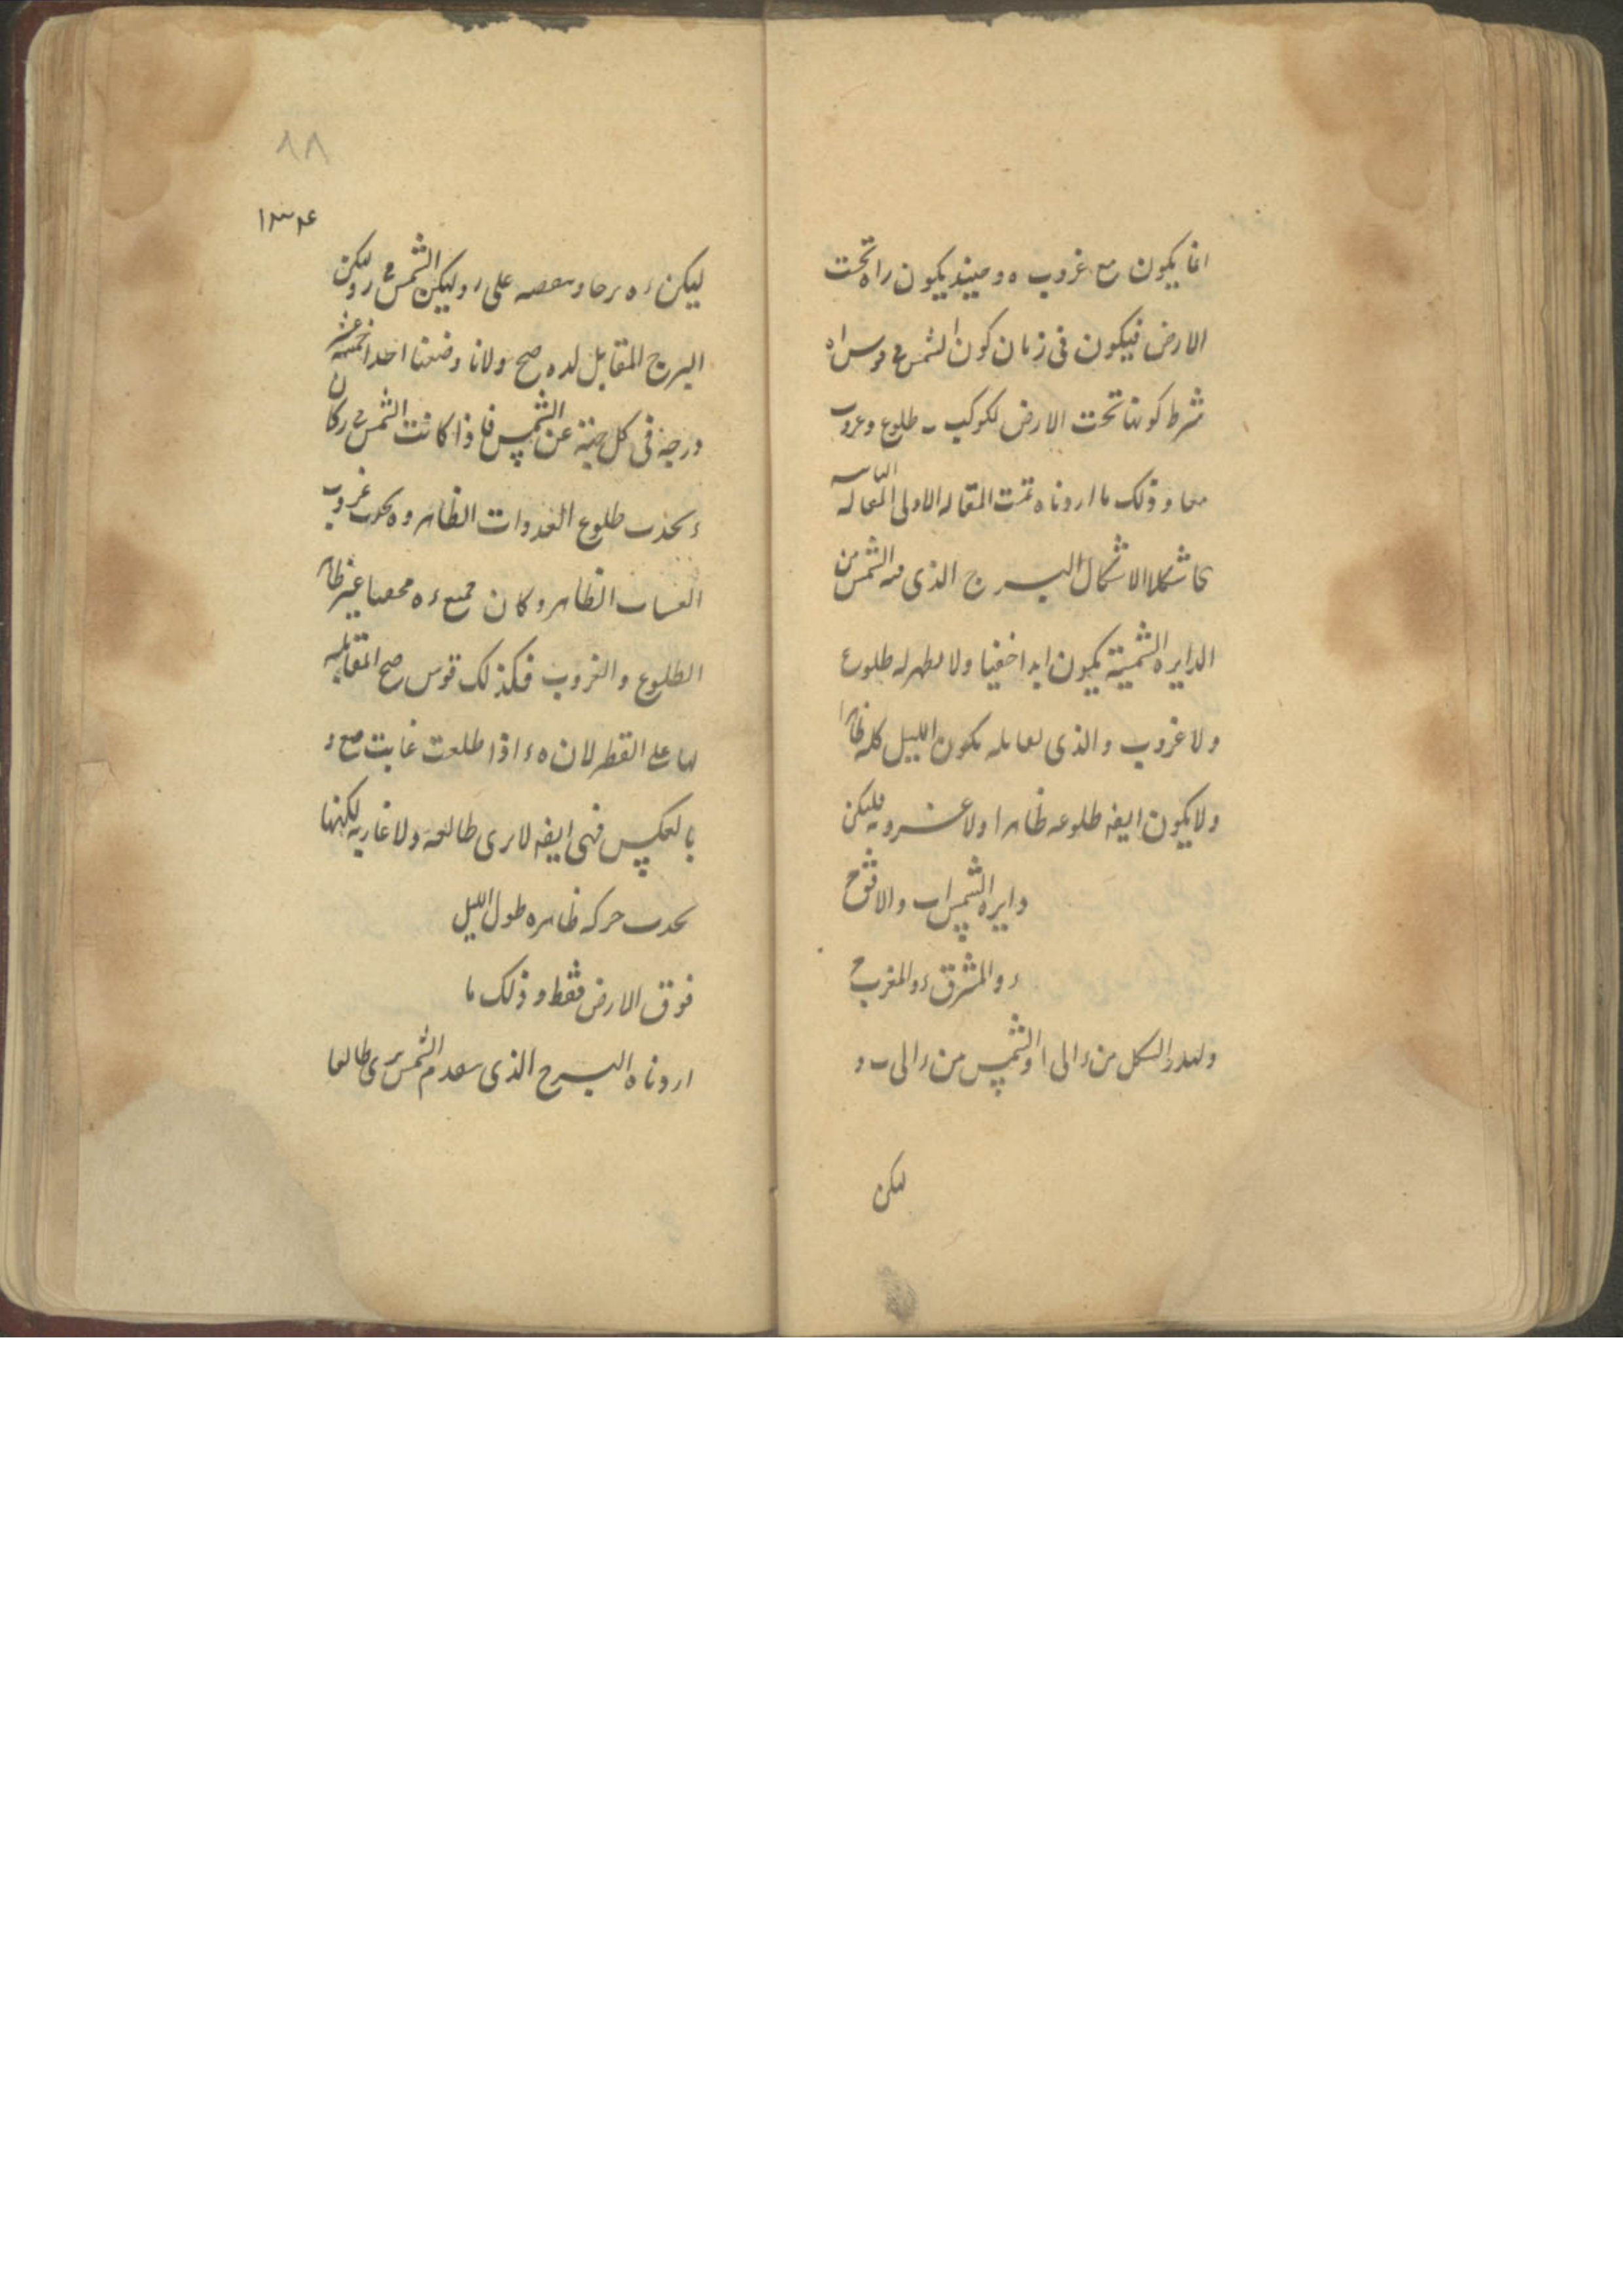 انما يكون مع غروب ه و حينئذ يكون را تحت
الارض فيكون فى زمان كون الشمس فى قوس راه
شرط كونها تحت الارض لكوكب ب طلوع وغروب
معا و ذلك ما اردناه تمت المقاله الاولى المقاله الثانيه
شكلا الاشكال البرج الذى فيه الشمس من
الدايره الشمسية يكون ابدا خفيا ولا يظهر له طلوع
ولا غروب والذى يقابله يكون الليل كله ظاهرا
ولا يكون ايضه طلوعه ظاهرا ولا غروبه فليكن
دايره الشمس اب والافق ح
د والمشرق د والمغرب ح
وليدر الكل من د الى ا والشمس من د الى ب و
ليكن
٨٨
١٣٤
ليكن ده برجا و نصفه على ر وليكن الشمس فى ر وليكن
البرج المقابل لده صح ولانا وضعنا احدا خمسة عشر
درجه فى كل جهة عن الشمس فاذا كانت الشمس فى ر كان
د يحدث طلوع الغدوات الظاهر و ه يحدث غروب
العشيات الظاهر وكان جميع ده مخفيا غير ظاهر
الطلوع والغروب فكذلك قوس صح المقابله
لها على القطر لان ه د اذا طلعت غابت صح و
بالعكس فهى ايضه لا ترى طالعه ولا غاربه لكنها
يحدث حركه ظاهره طول الليل
فوق الارض فقط و ذلك ما
اردناه البرج الذى يتقدم الشمس يرى طالعا